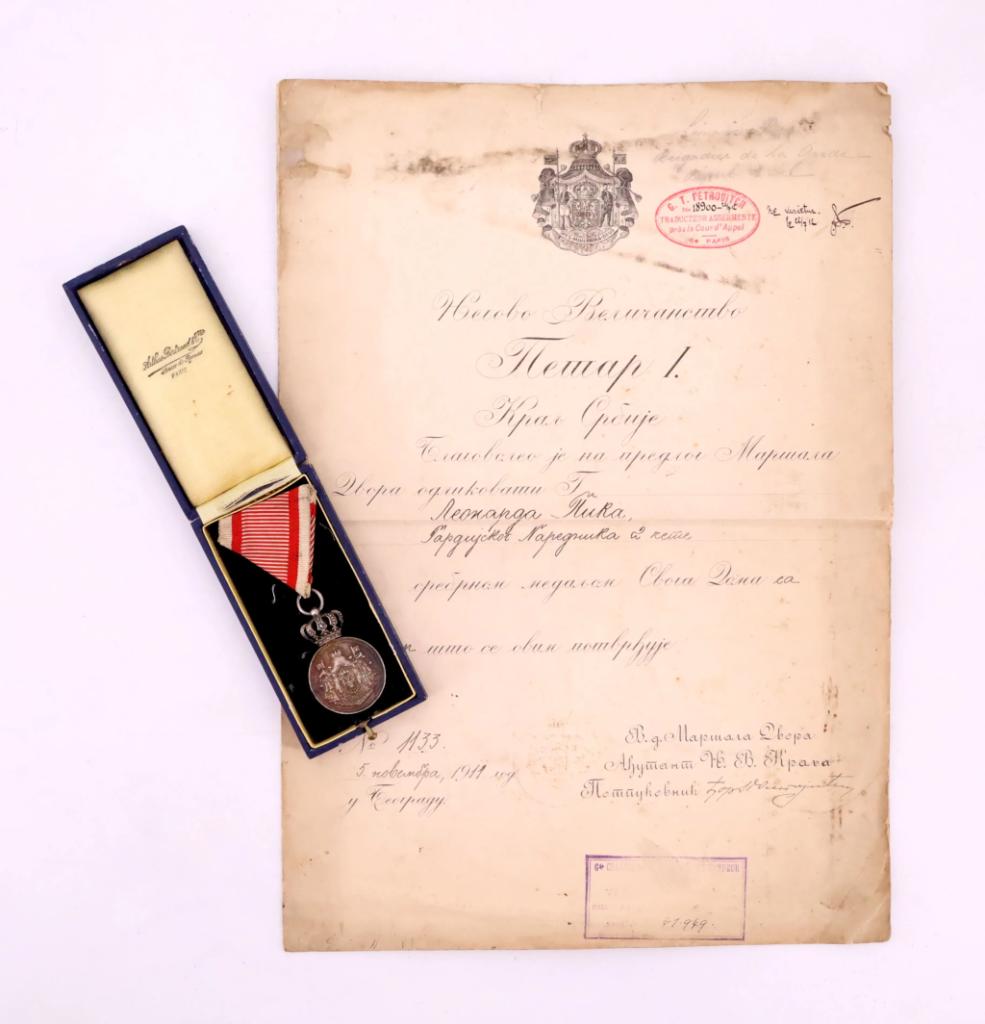 Arthus Bertrand & Cie
PARIS
Brigadier de la Garde
G. T. PETROVITCH
No 18900
TRADUCTEUR ASSERMENTÉ
près la Cour d'Appel
PARIS
Не varietur.
Његово Величанство
Петар I.
Краљ Србије
Благоволео је на предлог Маршала
Двора одликовати Г.
Леонарда Пика,
Гардијског Наредника 2 кете
сребрном медаљом Свога Дома са
што се овим потврђује
№ 1133
5. новембра, 1911 год
у Београду.
В. д. Маршала Двора
Ађутант Њ. В. Краља
Потпуковник
41.949